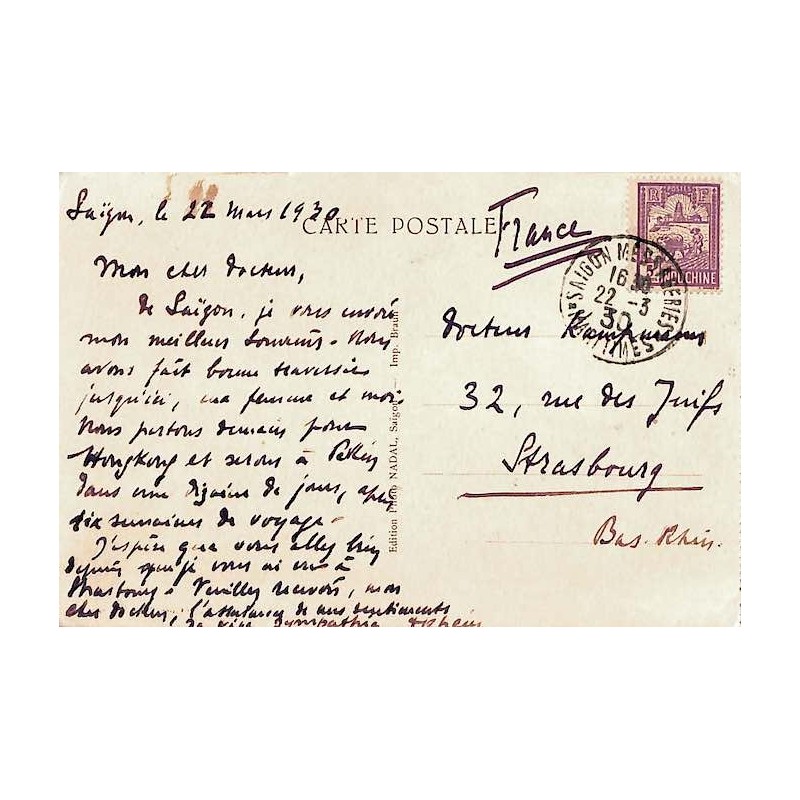 Saïgon, le 22 Mars 1930
CARTE POSTALE
Mon cher docteur,
de Saïgon, je vous envoie
mon meilleur souvenir. Nous
avons fait bonne traversée
jusqu'ici, ma femme et moi.
Nous partons demain pour
Hongkong et serons à Pékin
dans une dizaine de jours, après
six semaines de voyage.
J'espère que vous allez bien
depuis que je vous ai vu à
Strasbourg. Veuillez recevoir, mon
cher docteur, l'assurance de mes sentiments
de vive sympathie
Edition Photo NADAL, Saigon — Imp. Braun
France
POSTES
R F
INDOCHINE
SAIGON MESSAGERIES
16 30
22 -3
30
MARITIMES
docteur
32, rue des Juifs
Strasbourg
Bas-Rhin.